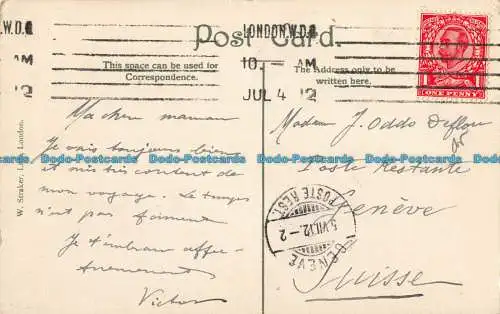 .W.D.O
AM
12
LONDON. W.D.O
10 - AM
JUL 4 12
Post Card.
This space can be used for
Correspondence.
The Address only to be
written here.
ONE PENNY
W. Straker, L London.
Ma chère maman
Je vais toujours bien
et suis très content de
mon voyage. Le temps
n'est pas fameux
Je t'embrasse affec-
tueusement
Victor
Madame J. Oddo Deflou
Poste Restante
Genève
Suisse
POSTE REST.
5.VII.12.-2
GENÈVE
Dodo-Postcards Dodo-Postcards Dodo-Postcards Dodo-Postcards Dodo-Postcards